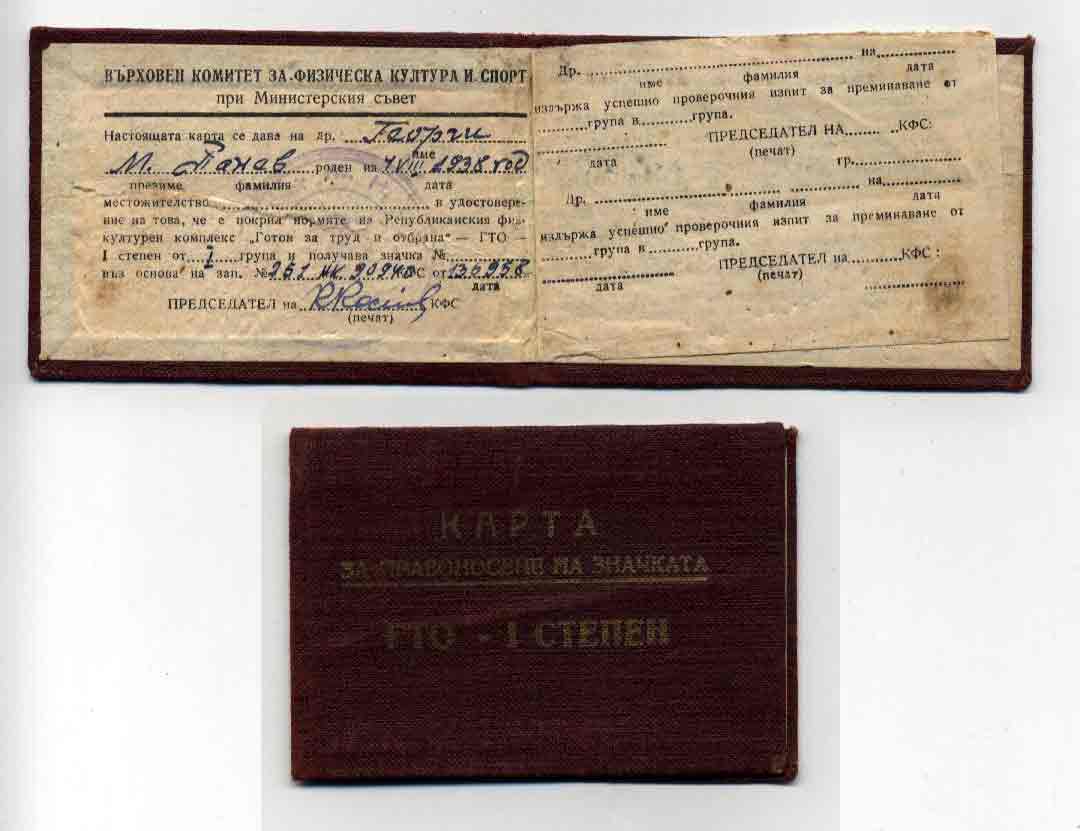 ВЪРХОВЕН КОМИТЕТ ЗА ФИЗИЧЕСКА КУЛТУРА И СПОРТ
при Министерския съвет
Настоящата карта се дава на др. Георги
име
М. Танев роден на 7 VIII 1938 год
презиме фамилия дата
местожителство в удостовере-
ние на това, че е покрил нормите на Републиканския физ-
културен комплекс „Готов за труд и отбрана" — ГТО —
I степен от I група и получава значка №
въз основа на зап. № 261 от
дата
ПРЕДСЕДАТЕЛ на КФС
(печат)
Др. на
име фамилия дата
издържа успешно проверочния изпит за преминаване от
група в група.
ПРЕДСЕДАТЕЛ НА КФС:
(печат)
дата гр.
Др. на
име фамилия дата
издържа успешно проверочния изпит за преминаване от
група в група.
ПРЕДСЕДАТЕЛ на КФС:
(печат)
дата
КАРТА
ЗА ПРАВОНОСЕНЕ НА ЗНАЧКАТА
ГТО - I СТЕПЕН